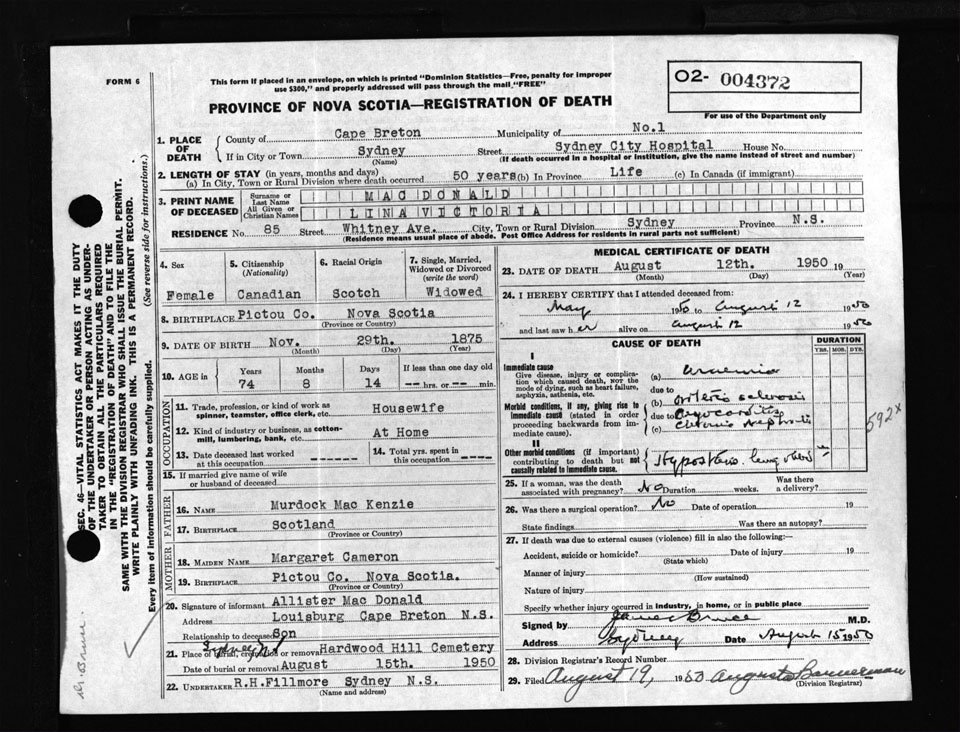 FORM 6
This form if placed in an envelope, on which is printed "Dominion Statistics—Free, penalty for improper
use $300," and properly addressed will pass through the mail, "FREE"
O2- 004372
For use of the Department only
PROVINCE OF NOVA SCOTIA—REGISTRATION OF DEATH
1. PLACE OF DEATH
County of Cape Breton Municipality of No.1
If in City or Town Sydney Street Sydney City Hospital House No.
(Name) (If death occurred in a hospital or institution, give the name instead of street and number)
2. LENGTH OF STAY (in years, months and days)
(a) In City, Town or Rural Division where death occurred 50 years (b) In Province Life (c) In Canada (if immigrant)
3. PRINT NAME OF DECEASED
Surname or Last Name MAC DONALD
All Given or Christian Names LINA VICTORIA
RESIDENCE No. 85 Street Whitney Ave. City, Town or Rural Division Sydney Province N.S.
(Residence means usual place of abode. Post Office Address for residents in rural parts not sufficient)
4. Sex
Female
5. Citizenship
(Nationality)
Canadian
6. Racial Origin
Scotch
7. Single, Married,
Widowed or Divorced
(write the word)
Widowed
8. BIRTHPLACE Pictou Co. Nova Scotia
(Province or Country)
9. DATE OF BIRTH Nov. 29th. 1875
(Month) (Day) (Year)
10. AGE in
Years Months Days If less than one day old
74 8 14 -- hrs. or -- min.
OCCUPATION
11. Trade, profession, or kind of work as
spinner, teamster, office clerk, etc. Housewife
12. Kind of industry or business, as cotton-
mill, lumbering, bank, etc. At Home
13. Date deceased last worked
at this occupation ------
14. Total yrs. spent in
this occupation -----
15. If married give name of wife
or husband of deceased
FATHER
16. Name Murdock Mac Kenzie
17. Birthplace Scotland
(Province or Country)
MOTHER
18. MAIDEN NAME Margaret Cameron
19. BIRTHPLACE Pictou Co. Nova Scotia.
(Province or Country)
20. Signature of informant Allister Mac Donald
Address Louisburg Cape Breton N.S.
Relationship to deceased Son
21. Place of burial, cremation or removal Hardwood Hill Cemetery
Sydney N.S.
Date of burial or removal August 15th. 1950
22. UNDERTAKER R.H.Fillmore Sydney N.S.
(Name and address)
MEDICAL CERTIFICATE OF DEATH
23. DATE OF DEATH August 12th. 1950 19
(Month) (Day) (Year)
24. I HEREBY CERTIFY that I attended deceased from:
May 19 to August 12 1950
and last saw her alive on August 12 1950
CAUSE OF DEATH
DURATION
YRS. MOS. DYS.
I
Immediate cause
Give disease, injury or complica-
tion which caused death, NOT the
mode of dying, such as heart failure,
asphyxia, asthenia, etc.
(a) Uraemia
due to
Morbid conditions, if any, giving rise to
immediate cause (stated in order
proceeding backwards from im-
mediate cause).
(b) Arterio sclerosis
due to Myocarditis
(c) Chronic Nephritis
592x
II
Other morbid conditions (if important)
contributing to death but not
causily related to immediate cause.
Hypostasis
25. If a woman, was the death
associated with pregnancy? No Duration weeks. Was there
a delivery?
26. Was there a surgical operation? No Date of operation 19
State findings Was there an autopsy?
27. If death was due to external causes (violence) fill in also the following:—
Accident, suicide or homicide? Date of injury 19
(State which)
Manner of injury
(How sustained)
Nature of injury
Specify whether injury occurred in industry, in home, or in public place
Signed by James Bruce M.D.
Address Sydney Date August 15 1950
28. Division Registrar's Record Number
29. Filed August 19, 1950 Augusta Bannerman
(Division Registrar)
SEC. 46—VITAL STATISTICS ACT MAKES IT THE DUTY
OF THE UNDERTAKER OR PERSON ACTING AS UNDER-
TAKER TO OBTAIN ALL THE PARTICULARS REQUIRED
IN THE "REGISTRATION OF DEATH" AND TO FILE THE
SAME WITH THE DIVISION REGISTRAR WHO SHALL ISSUE THE BURIAL PERMIT.
WRITE PLAINLY WITH UNFADING INK. THIS IS A PERMANENT RECORD.
Every item of information should be carefully supplied. (See reverse side for instructions.)
Dr. Bruce.